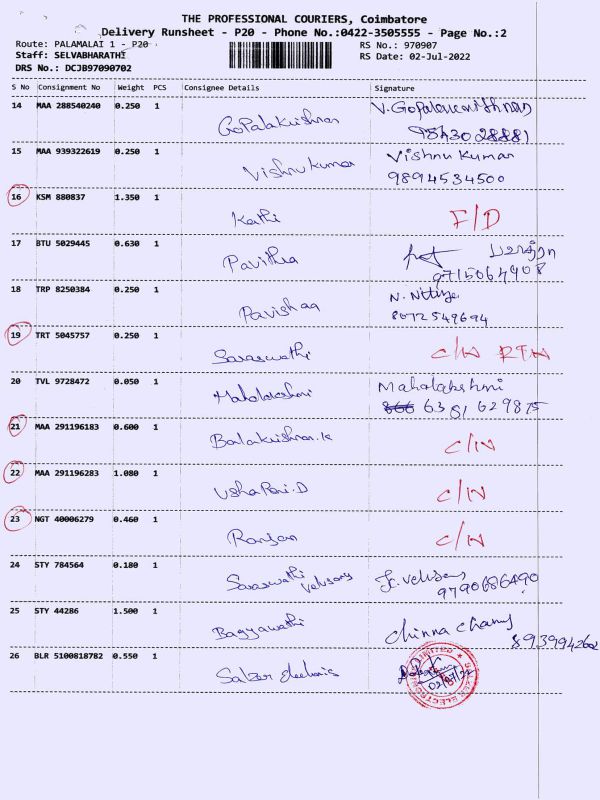 THE PROFESSIONAL COURIERS, Coimbatore
Delivery Runsheet - P20 - Phone No.:0422-3505555 - Page No.:2
Route: PALAMALAI 1 - P20 RS No.: 970907
Staff: SELVABHARATHI RS Date: 02-Jul-2022
DRS No.: DCJB97090702
S No Consignment No Weight PCS Consignee Details Signature
14 MAA 288540240 0.250 1
Gopalakrishnan V. Gopalakrishnan
15 MAA 939322619 0.250 1
Vishnu kumar Vishnu Kumar
9894534500
16 KSM 880837 1.350 1
Kathi F/D
17 BTU 5029445 0.630 1
Pavithra
9715064908
18 TRP 8250384 0.250 1
Pavishaa N. Nithya
8072549694
19 TRT 5045757 0.250 1
Saraswathi C/N RTN
20 TVL 9728472 0.050 1
Mahalakshmi Mahalakshmi
6381629875
21 MAA 291196183 0.600 1
Balakrishnan.k C/N
22 MAA 291196283 1.080 1
Usha Rani.D C/N
23 NGT 40006279 0.460 1
Ranjan C/N
24 STY 784564 0.180 1
Saraswathi
9790686490
25 STY 44286 1.500 1
Bagyawathi Chinna Chamy
8939942602
26 BLR 5100818782 0.550 1
Salzer electronics
02/07/22